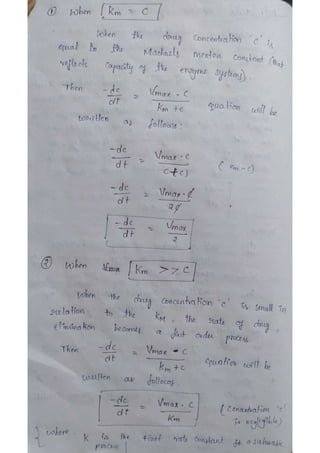 ① When Km = C
When the drug concentration 'c' is
equal to the Michaels menten constant (that
reflects capacity of the enzyme system).
Then -dc/dt = Vmax . C / Km + c equation will be
written as follows:
-dc/dt = Vmax . c / c + c) (Km = c)
-dc/dt = Vmax . c / 2c
-dc/dt = Vmax / 2
② When Km >> C
When the drug concentration 'c' is small in
relation to the KM, the rate of drug
elimination becomes a first order process
Then -dc/dt = Vmax . c / Km + c equation will be
written as follows
-dc/dt = Vmax . C / Km (concentration 'c' is negligible)
where K is the first rate constant
process